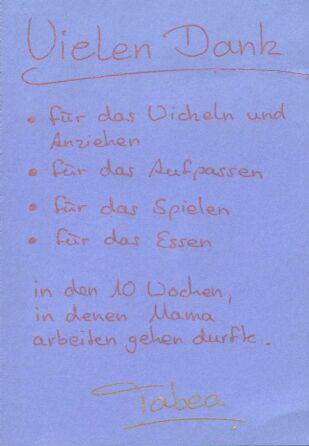 Vielen Dank
• für das Wickeln und
Anziehen
• für das Aufpassen
• für das Spielen
• für das Essen
in den 10 Wochen,
in denen Mama
arbeiten gehen durfte.
Tabea